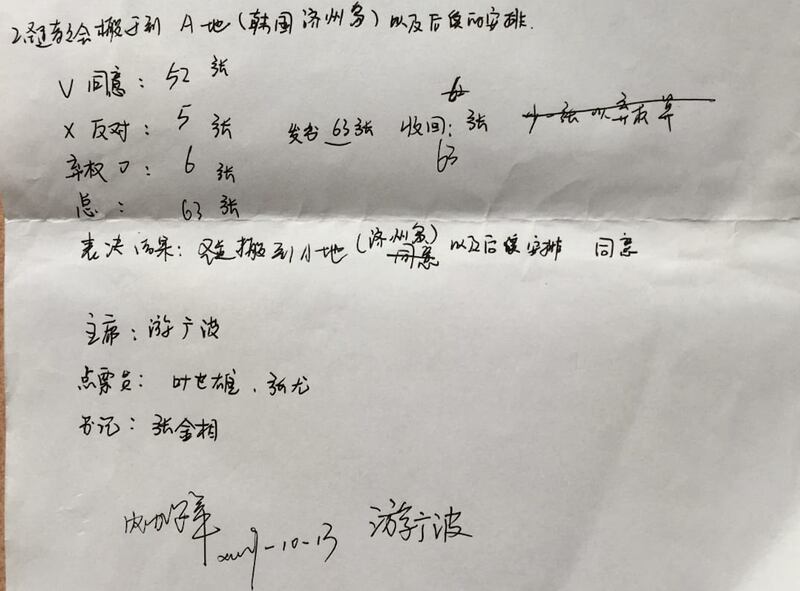 2.圣道教会搬迁到 A地(韩国济州岛)以及后续的安排.
V 同意: 52 张
X 反对: 5 张 发出 63张 收回: 62 张 少一张以弃权算
63
弃权 O: 6 张
总: 63 张
表决结果: 搬到A地(济州岛)同意以及后续安排 同意
主席: 游广波
点票员: 叶世雄、张尤
书记: 张金相
2019-10-13 游广波